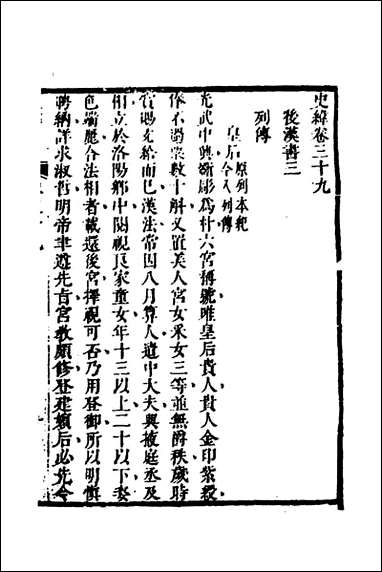 史緯卷三十九
後漢書三
列傳
皇后 原列本紀今入列傳
光武中興斲彫為朴六宮稱號唯皇后貴人貴人金印紫綬
俸不過粟數十斛又置美人宮女采女三等並無爵秩歲時
賞賜充給而已漢法常因八月算人遣中大夫與掖庭丞及
相工於洛陽鄉中閱視良家童女年十三以上二十以下姿
色端麗合法相者載還後宮擇視可否乃用登御所以明慎
聘納詳求淑哲明帝聿遵先旨宮教頗修登建嬪后必先令